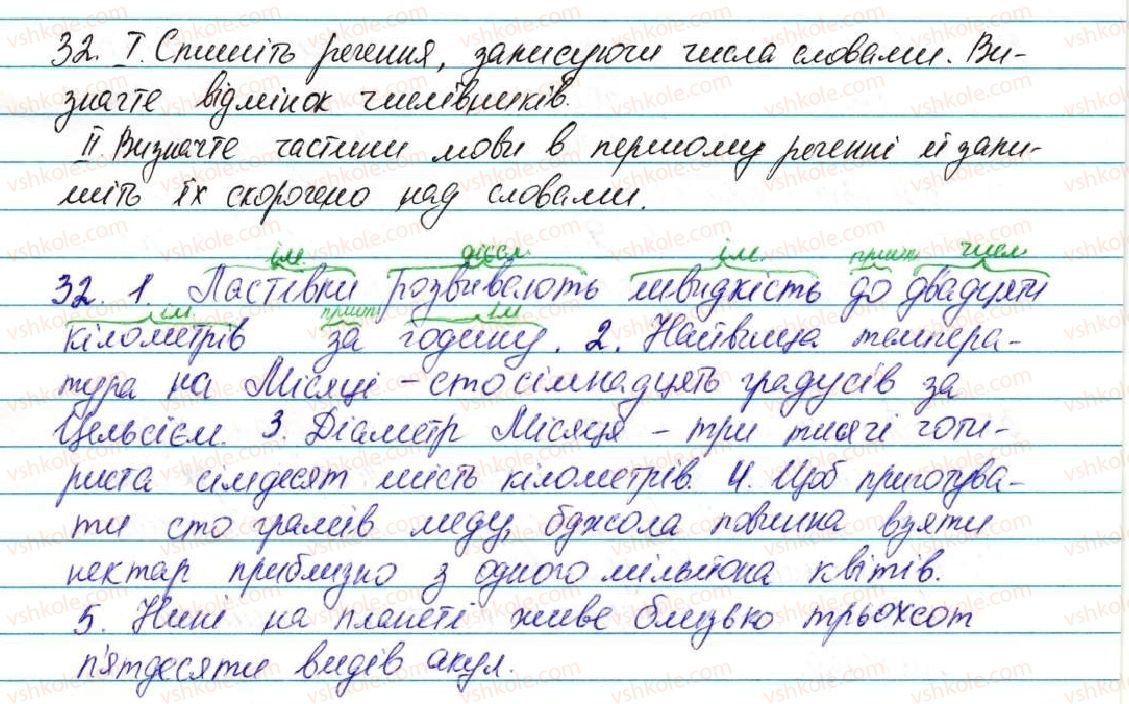 32. І. Спишіть речення, записуючи числа словами. Ви-
значте відмінок числівників.
ІІ. Визначте частини мови в першому реченні й запи-
шіть їх скорочено над словами.
ім. дієсл. ім. прийм. числ.
32. 1. Ластівки розвивають швидкість до двадцяти
ім. прийм. ім.
кілометрів за годину. 2. Найвища темпера-
тура на Місяці – сто сімнадцять градусів за
Цельсієм. 3. Діаметр Місяця – три тисячі чоти-
риста сімдесят шість кілометрів. 4. Щоб приготува-
ти сто грамів меду, бджола повинна взяти
нектар приблизно з одного мільйона квітів.
5. Нині на планеті живе близько трьохсот
п'ятдесяти видів акул.